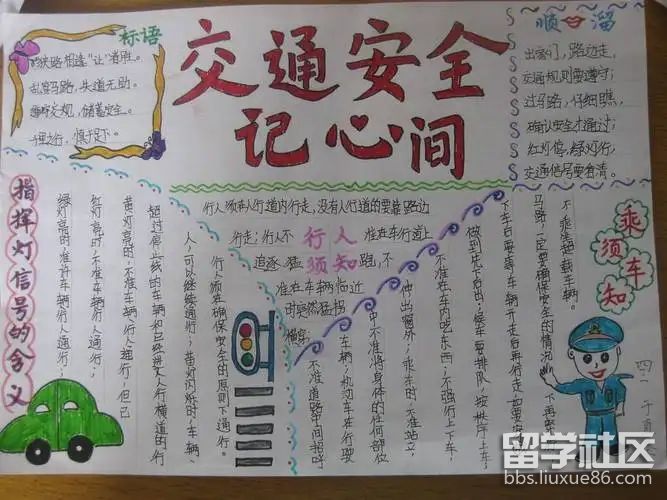 标语
狭路相逢"让"者胜。
乱穿马路，失道无助。
遵守交规，储蓄安全。
千里之行，慎于足下。
交通安全
记心间
顺口溜
出家门，路边走，
交通规则要遵守；
过马路，仔细瞧，
确认安全才通过；
红灯停，绿灯行，
交通信号要看清。
指挥灯信号的含义
绿灯亮时，准许车辆行人通行；
红灯亮时，不准车辆行人通行；
黄灯亮时，不准车辆行人通行，但已
超过停止线的车辆和已经进入人行横道的行
人，可以继续通行；黄灯闪烁时，车辆、
行人须在确保安全的原则下通行。
行人须知
行人须在人行道内行走，没有人行道的要靠路边
行走；行人不准在车行道上
追逐猛跑，不
准在车辆临近
时突然猛拐
横穿
不准道路中间招呼
车辆；机动车在行驶
中不准将身体的任何部位
伸出窗外；乘车时，不准站立
不准在车内吃东西；不强行上下车，
做到先下后上；候车要排队，按秩序上车；
下车后要等车辆开走后再行走，如要穿
马路，一定要确保安全的情况下再穿
不乘坐超载车辆。
乘车须知
四一
留学社区
bbs.liuxue86.com